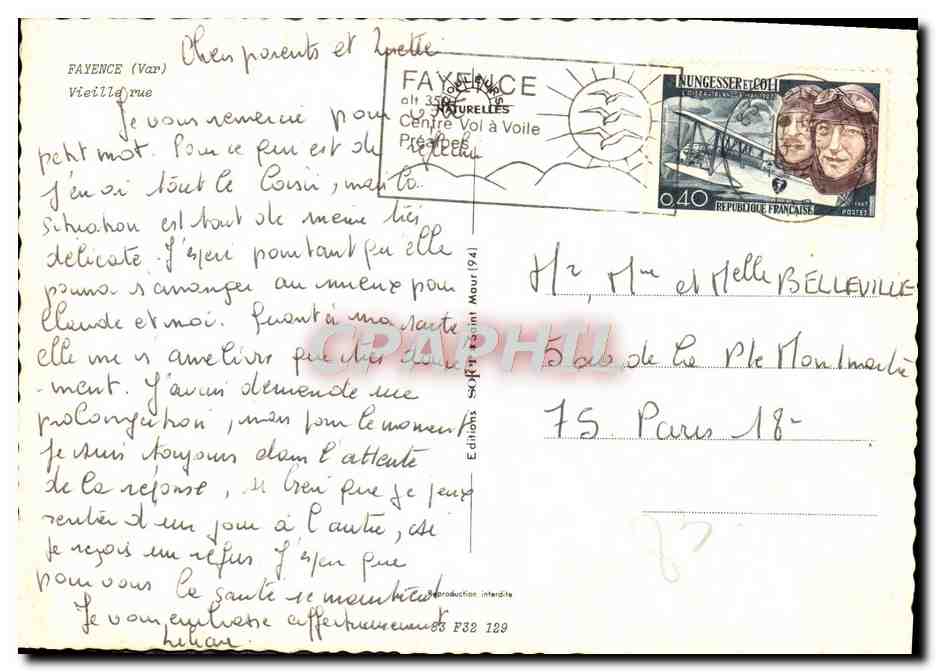 Chers parents et Zezette
FAYENCE (Var)
Vieille rue
Je vous remercie pour votre
petit mot. Pour ce qui est de réfléchir
j'en ai tout le loisir, mais la
situation est tout de même très
délicate. J'espère pourtant qu'elle
pourra s'arranger au mieux pour
Claude et moi. Quant à ma santé
elle ne s'améliore que très douce
-ment. J'avais demandé une
prolongation, mais pour le moment
je suis toujours dans l'attente
de la réponse, si bien que je peux
rentrer d'un jour à l'autre, si
je reçois un refus. J'espère que
pour vous la santé se maintient
Je vous embrasse affectueusement
FAYENCE
alt 350
Centre Vol à Voile
Préalpes
NATURELLES
NUNGESSER et COLI
L'OISEAU BLANC
0,40
RÉPUBLIQUE FRANÇAISE
1967
POSTES
Mr, Mme et Melle BELLEVILLE
5 de la Pte Montmartre
75 Paris 18
Editions Saint Maur (94)
CPAPHIL
Reproduction interdite
83 F32 129